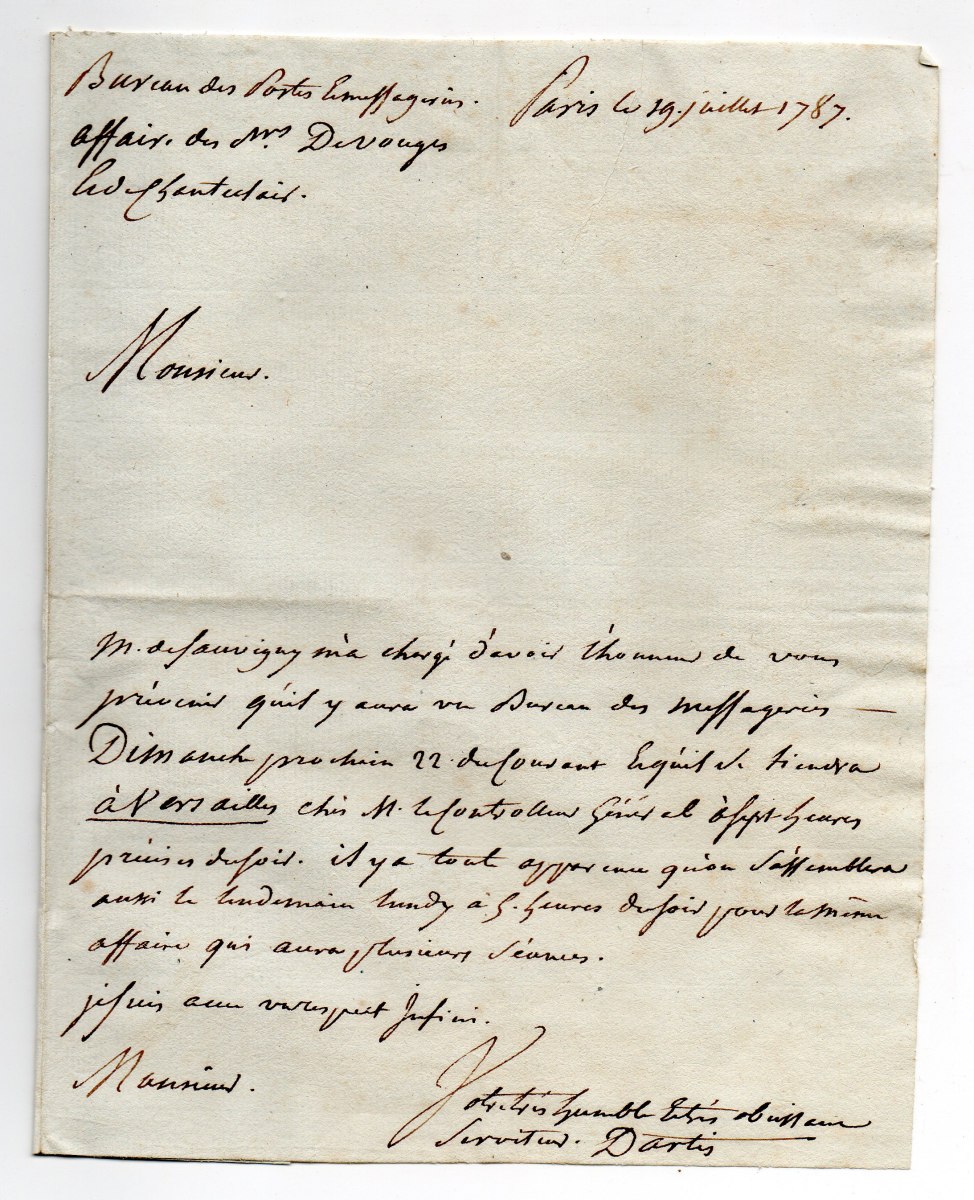 Bureau des Postes Et messageries.
Paris le 19. juillet 1787.
affaire des Mrs. Devouges
Et de Chanteclair.
Monsieur.
M. de Sauvigny m'a chargé d'avoir l'honneur de vous
prévenir qu'il y aura un Bureau des messageries —
Dimanche prochain 22. du Courant Et qu'il se tiendra
à Versailles chés M. le Controlleur Général à Sept heures
précises du soir. il y a toute apparence qu'on s'assemblera
aussi le lendemain lundy à 5. heures du soir pour la même
affaire qui aura plusieurs Séances.
je suis avec un respect Infini.
Monsieur.
Votre très humble Et très obeissant
Serviteur. Dartis